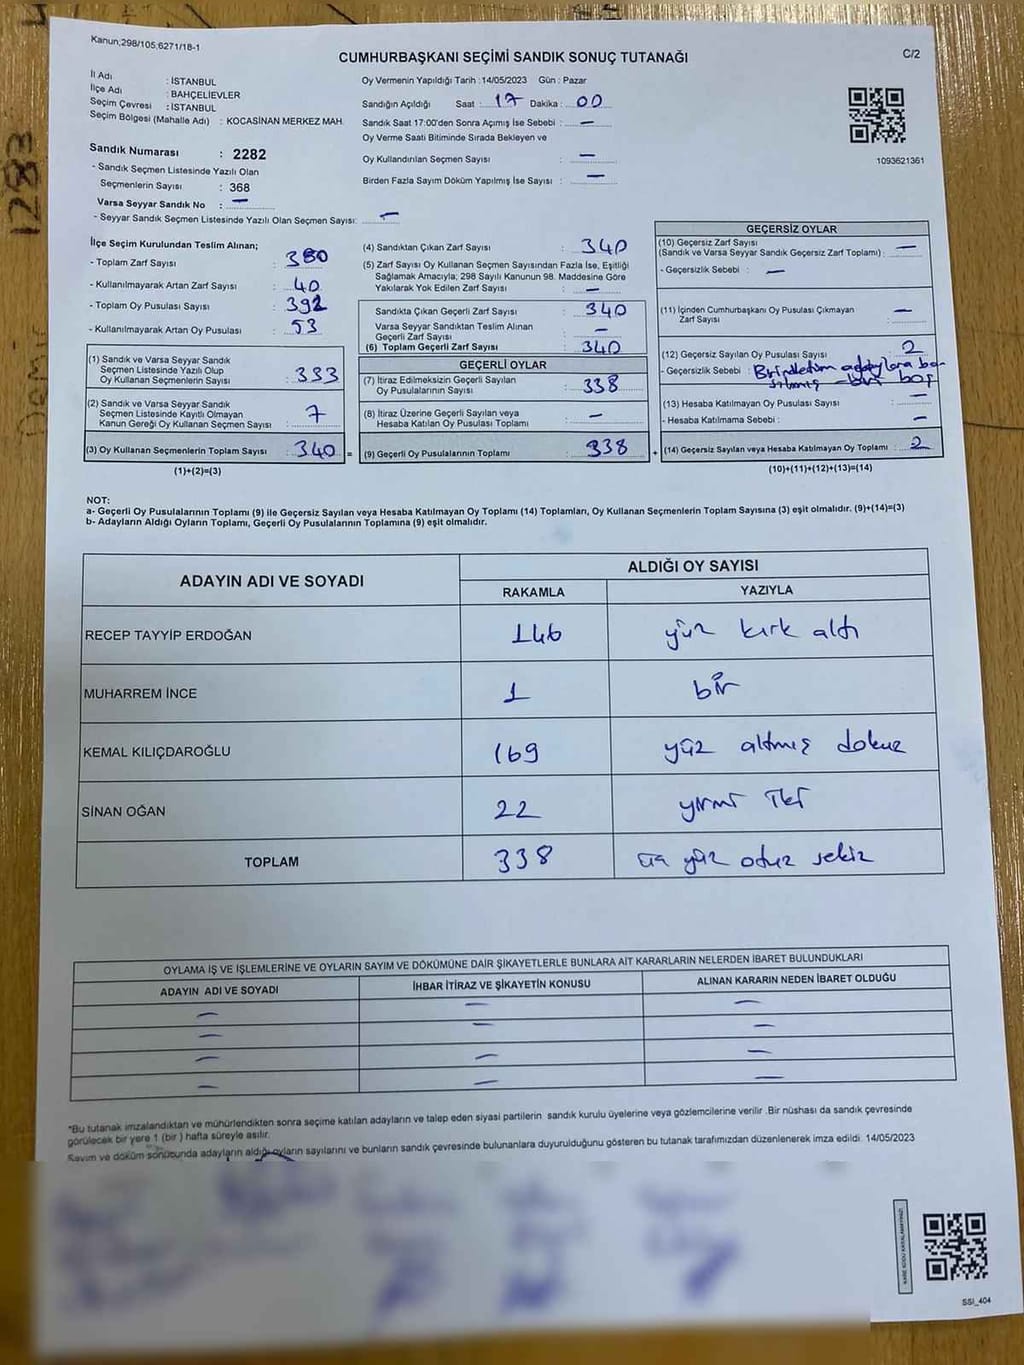 Kanun;298/105,6271/18-1
CUMHURBAŞKANI SEÇİMİ SANDIK SONUÇ TUTANAĞI
C/2
İl Adı : İSTANBUL
İlçe Adı : BAHÇELİEVLER
Seçim Çevresi : İSTANBUL
Seçim Bölgesi (Mahalle Adı) : KOCASİNAN MERKEZ MAH.
Oy Vermenin Yapıldığı Tarih : 14/05/2023 Gün : Pazar
Sandığın Açıldığı Saat : 17 Dakika : 00
Sandık Saat 17:00'den Sonra Açımış İse Sebebi : —
Oy Verme Saati Bitiminde Sırada Bekleyen ve
Oy Kullandırılan Seçmen Sayısı : —
Birden Fazla Sayım Döküm Yapılmış İse Sayısı : —
1093621361
Sandık Numarası : 2282
- Sandık Seçmen Listesinde Yazılı Olan
Seçmenlerin Sayısı : 368
Varsa Seyyar Sandık No : —
- Seyyar Sandık Seçmen Listesinde Yazılı Olan Seçmen Sayısı: —
İlçe Seçim Kurulundan Teslim Alınan;
- Toplam Zarf Sayısı : 380
- Kullanılmayarak Artan Zarf Sayısı : 40
- Toplam Oy Pusulası Sayısı : 392
- Kullanılmayarak Artan Oy Pusulası : 53
(1) Sandık ve Varsa Seyyar Sandık
Seçmen Listesinde Yazılı Olup
Oy Kullanan Seçmenlerin Sayısı : 333
(2) Sandık ve Varsa Seyyar Sandık
Seçmen Listesinde Kayıtlı Olmayan
Kanun Gereği Oy Kullanan Seçmen Sayısı : 7
(3) Oy Kullanan Seçmenlerin Toplam Sayısı : 340 =
(1)+(2)=(3)
(4) Sandıktan Çıkan Zarf Sayısı : 340
(5) Zarf Sayısı Oy Kullanan Seçmen Sayısından Fazla İse, Eşitliği
Sağlamak Amacıyla; 298 Sayılı Kanunun 98. Maddesine Göre
Yakılarak Yok Edilen Zarf Sayısı : —
Sandıkta Çıkan Geçerli Zarf Sayısı : 340
Varsa Seyyar Sandıktan Teslim Alınan
Geçerli Zarf Sayısı : —
(6) Toplam Geçerli Zarf Sayısı : 340
GEÇERLİ OYLAR
(7) İtiraz Edilmeksizin Geçerli Sayılan
Oy Pusulalarının Sayısı : 338
(8) İtiraz Üzerine Geçerli Sayılan veya
Hesaba Katılan Oy Pusulası Toplamı : —
(9) Geçerli Oy Pusulalarının Toplamı : 338 +
GEÇERSİZ OYLAR
(10) Geçersiz Zarf Sayısı
(Sandık ve Varsa Seyyar Sandık Geçersiz Zarf Toplamı) : —
- Geçersizlik Sebebi : —
(11) İçinden Cumhurbaşkanı Oy Pusulası Çıkmayan
Zarf Sayısı : —
(12) Geçersiz Sayılan Oy Pusulası Sayısı : 2
- Geçersizlik Sebebi : Birinde tüm adaylara ba
sılmış - biri boş
(13) Hesaba Katılmayan Oy Pusulası Sayısı : —
- Hesaba Katılmama Sebebi : —
(14) Geçersiz Sayılan veya Hesaba Katılmayan Oy Toplamı : 2
(10)+(11)+(12)+(13)=(14)
NOT:
a- Geçerli Oy Pusulalarının Toplamı (9) ile Geçersiz Sayılan veya Hesaba Katılmayan Oy Toplamı (14) Toplamları, Oy Kullanan Seçmenlerin Toplam Sayısına (3) eşit olmalıdır. (9)+(14)=(3)
b- Adayların Aldığı Oyların Toplamı, Geçerli Oy Pusulalarının Toplamına (9) eşit olmalıdır.
ADAYIN ADI VE SOYADI
ALDIĞI OY SAYISI
RAKAMLA YAZIYLA
RECEP TAYYİP ERDOĞAN 146 yüz kırk altı
MUHARREM İNCE 1 bir
KEMAL KILIÇDAROĞLU 169 yüz altmış dokuz
SİNAN OĞAN 22 yirmi iki
TOPLAM 338 üç yüz otuz sekiz
OYLAMA İŞ VE İŞLEMLERİNE VE OYLARIN SAYIM VE DÖKÜMÜNE DAİR ŞİKAYETLERLE BUNLARA AİT KARARLARIN NELERDEN İBARET BULUNDUKLARI
ADAYIN ADI VE SOYADI İHBAR İTİRAZ VE ŞİKAYETİN KONUSU ALINAN KARARIN NEDEN İBARET OLDUĞU
— — —
— — —
— — —
— — —
*Bu tutanak imzalandıktan ve mühürlendikten sonra seçime katılan adayların ve talep eden siyasi partilerin sandık kurulu üyelerine veya gözlemcilerine verilir .Bir nüshası da sandık çevresinde
görülecek bir yere 1 (bir ) hafta süreyle asılır.
Sayım ve döküm sonucunda adayların aldığı oyların sayılarını ve bunların sandık çevresinde bulunanlara duyurulduğunu gösteren bu tutanak tarafımızdan düzenlenerek imza edildi. 14/05/2023
SSI_404
1283